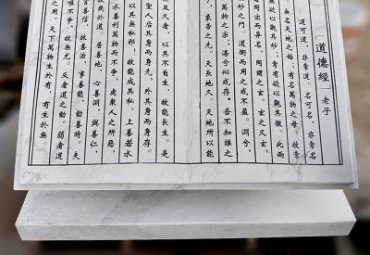 道德經 老子
道可道，非常道。名可名，非常名
無名天地之始。有名萬物之母。故常
欲以觀其妙。常有欲以觀其徼。此兩
同出而異名，同謂之玄。玄之又玄，
妙之門。道沖而用之或不盈。淵兮，
萬物之宗。湛兮似或存。吾不知誰之
象帝之先。天長地久。天地所以能
且久者，以其不自生，故能長生。是
聖人后其身而身先，外其身而身存。
以其無私邪，故能成其私。上善若水
水善利萬物而不爭，處衆人之所惡，
故幾於道。居善地，心善淵，與善仁，
言善信，政善治，事善能，動善時。夫
唯不爭，故無尤。反者道之動，弱者道
之用。天下萬物生於有，有生於無